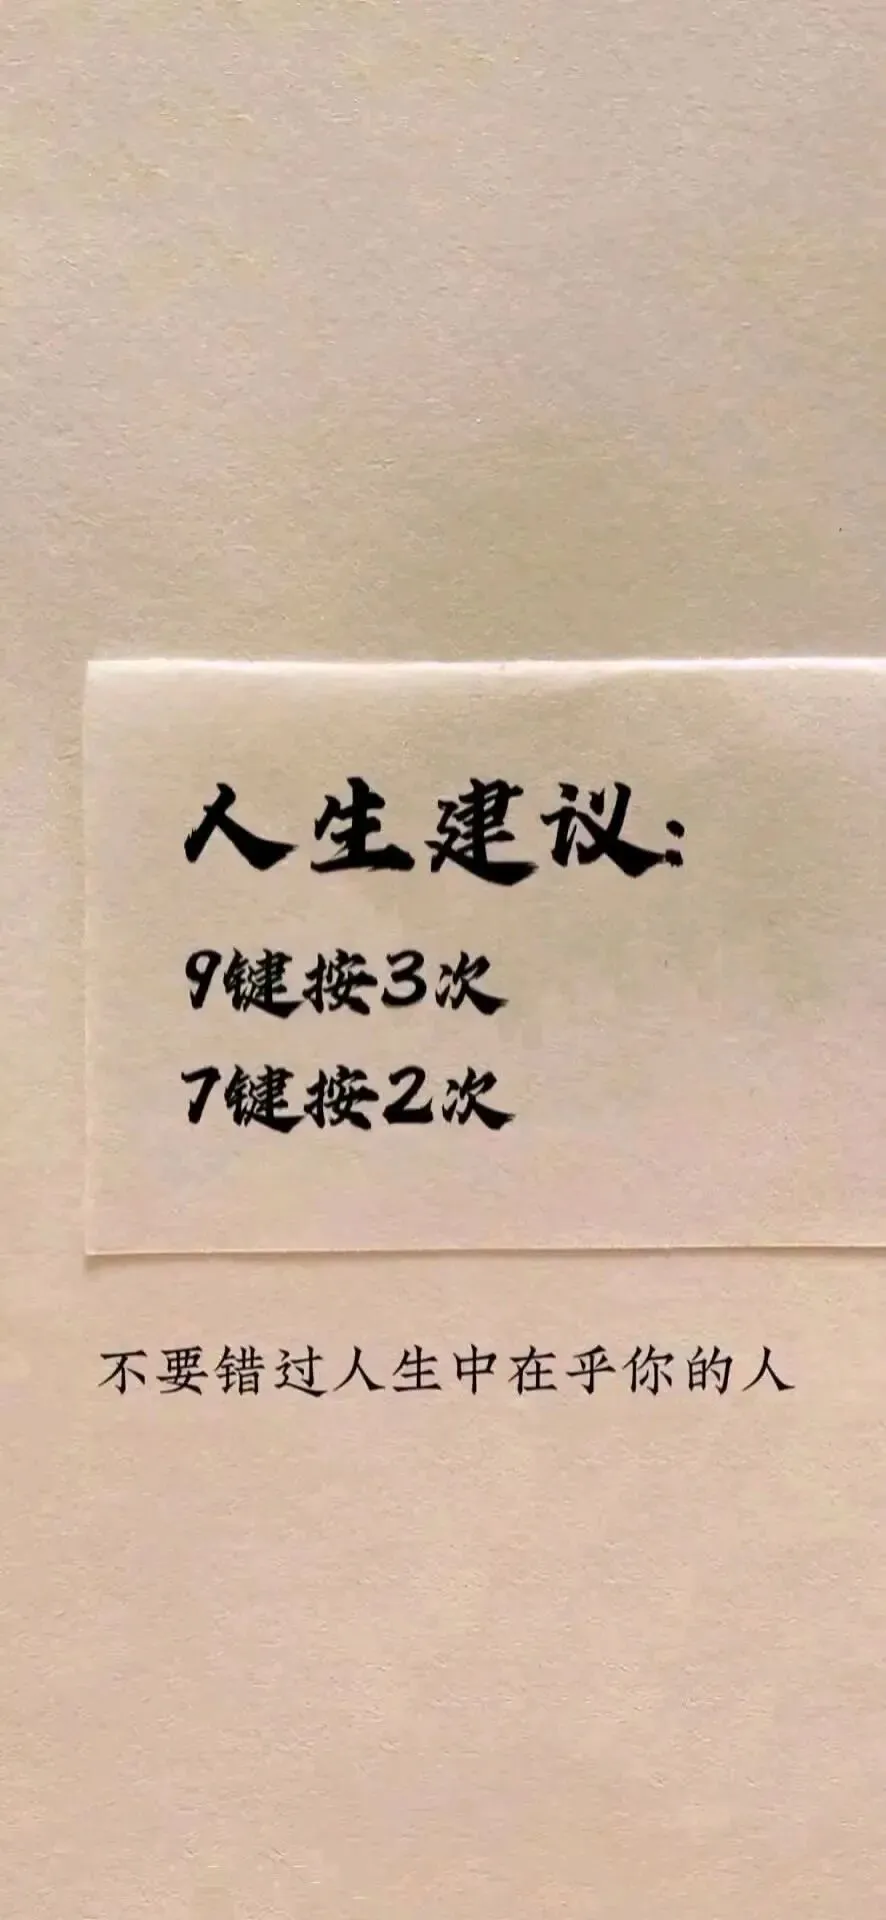 人生建议:
9键按3次
7键按2次
不要错过人生中在乎你的人